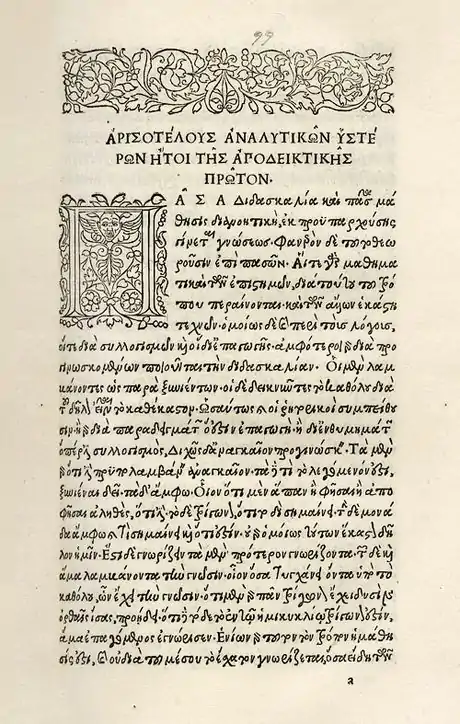 99
ἈΡΙΣΟΤΈΛΟΥΣ ἈΝΑΛΥΤΙΚΩ͂Ν ὙΣΤΈ
ΡΩΝ Ἤ̓ΤΟΙ ΤΗ͂Σ ἈΠΟΔΕΙΚΤΙΚΗ͂Σ
ΠΡΩ͂ΤΟΝ·
ΠΑ͂ΣΑ διδασκαλία καὶ πᾶσα μά
θησις διανοητικὴ, ἐκ προϋπαρχούσης
γίνεται γνώσεως. Φανερὸν δὲ τοῦτο θεω
ροῦσιν ἐπὶ πασῶν. Αἵ τε γὰρ μαθημα
τικαὶ τῶν ἐπιστημῶν, διὰ τούτου τοῦ τρό
που περαίνονται. καὶ τῶν ἄλλων ἑκάστη
τεχνῶν. ὁμοίως δὲ καὶ περὶ τοὺς λόγους,
οἵ τε διὰ συλλογισμῶν καὶ οἱ δι' ἐπαγωγῆς. ἀμφότεροι γὰρ διὰ προ
γινωσκομένων ποιοῦνται τὴν διδασκαλίαν. Οἱ μὲν λαμ
βάνοντες ὡς παρὰ ξυνιέντων. οἱ δὲ δεικνύντες τὸ καθόλου διὰ
τοῦ δῆλον εἶναι τὸ καθέκαστον. Ὡσαύτως δὲ καὶ οἱ ῥητορικοὶ συμπείθου
σιν. ἢ γὰρ διὰ παραδειγμάτων, ὅ ἐστιν ἐπαγωγὴ. ἢ δι' ἐνθυμημάτων,
ὅπερ ἐστὶ συλλογισμὸς. Διχῶς δ' ἀναγκαῖον προγινώσκειν. Τὰ μὲν
γὰρ ὅτι ἔστι προϋπολαμβάνειν ἀναγκαῖον. τὰ δὲ τί τὸ λεγόμενόν ἐστι,
ξυνιέναι δεῖ. τὰ δ' ἄμφω. Οἷον ὅτι μὲν ἅπαν ἢ φῆσαι ἢ ἀπο
φῆσαι ἀληθὲς, ὅτι ἔστι. τὸ δὲ τρίγωνον, ὅτι τοδὶ σημαίνει. τὴν δὲ μονά
δα ἄμφω. καὶ τί σημαίνει καὶ ὅτι ἔστιν. οὐ γὰρ ὁμοίως τούτων ἕκαστον δῆ
λον ἡμῖν. Ἔστι δὲ γνωρίζειν τὰ μὲν πρότερον γνωρίζοντα. τῶν δὲ καὶ
ἅμα λαμβάνοντα τὴν γνῶσιν. οἷον ὅσα τυγχάνει ὄντα ὑπὸ τὸ
καθόλου, ὧν ἔχει τὴν γνῶσιν. ὅτι μὲν γὰρ πᾶν τρίγωνον ἔχει δυσὶν
ὀρθαῖς ἴσας, προῄδει. ὅτι δὲ τόδε τὸ ἐν τῷ ἡμικυκλίῳ τρίγωνόν ἐστιν,
ἅμα ἐπαγόμενος ἐγνώρισεν. Ἐνίων γὰρ τοῦτον τὸν τρόπον ἡ μάθη
σίς ἐστι, καὶ οὐ διὰ τοῦ μέσου τὸ ἔσχατον γνωρίζεται, ὅσα ἤδη τῶν
a